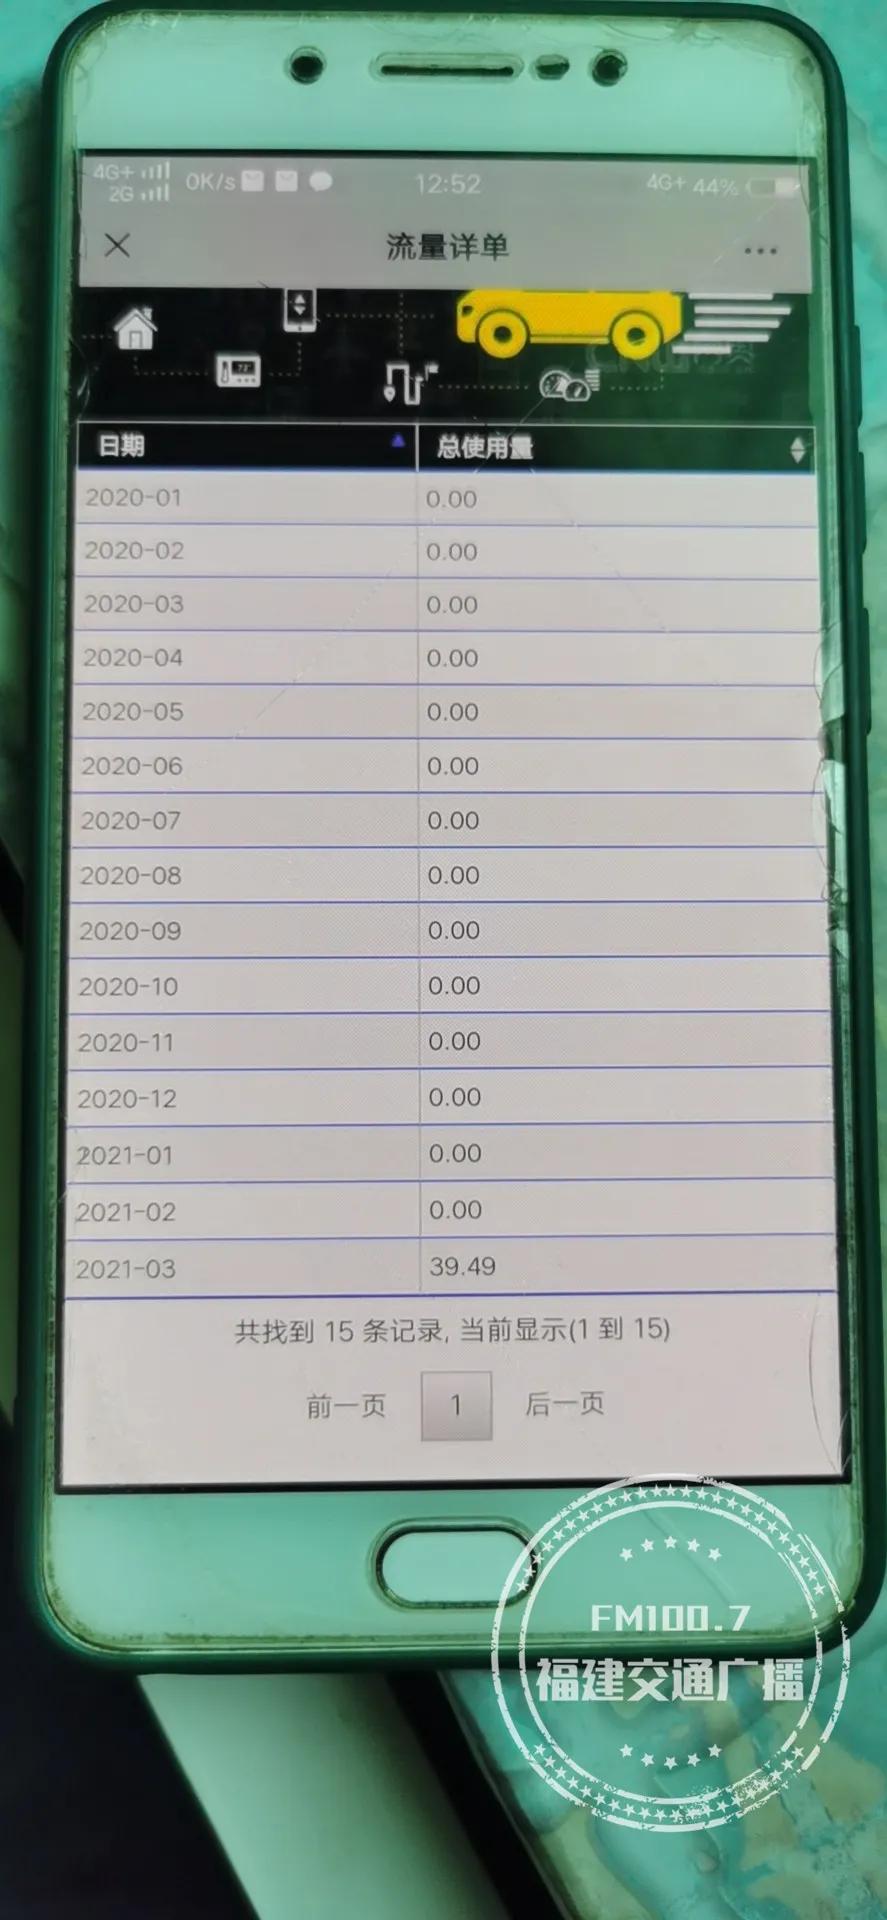 4G+ 0K/s 12:52 4G+ 44%
2G
流量详单
73°
日期 总使用量
2020-01 0.00
2020-02 0.00
2020-03 0.00
2020-04 0.00
2020-05 0.00
2020-06 0.00
2020-07 0.00
2020-08 0.00
2020-09 0.00
2020-10 0.00
2020-11 0.00
2020-12 0.00
2021-01 0.00
2021-02 0.00
2021-03 39.49
共找到 15 条记录, 当前显示(1 到 15)
前一页 1 后一页
FM100.7
福建交通广播